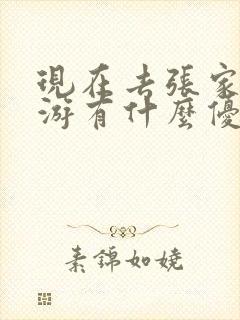 現在去張家
游有什麼優
素錦如嬈